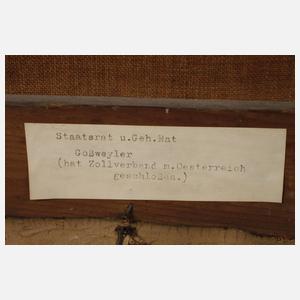 Staatsrat u.Geh.Rat
Goßweyler
(hat Zollverband m.Oesterreich
geschloßen.)